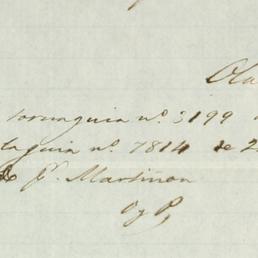 Ola
tornaguia nº 3199
laguia nº 7814 de 2
Jº Martiñon